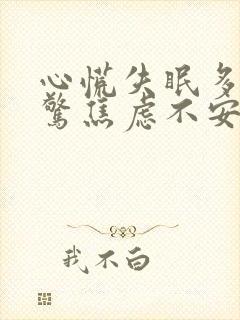 心慌失眠多
惊焦虑不安
我不白